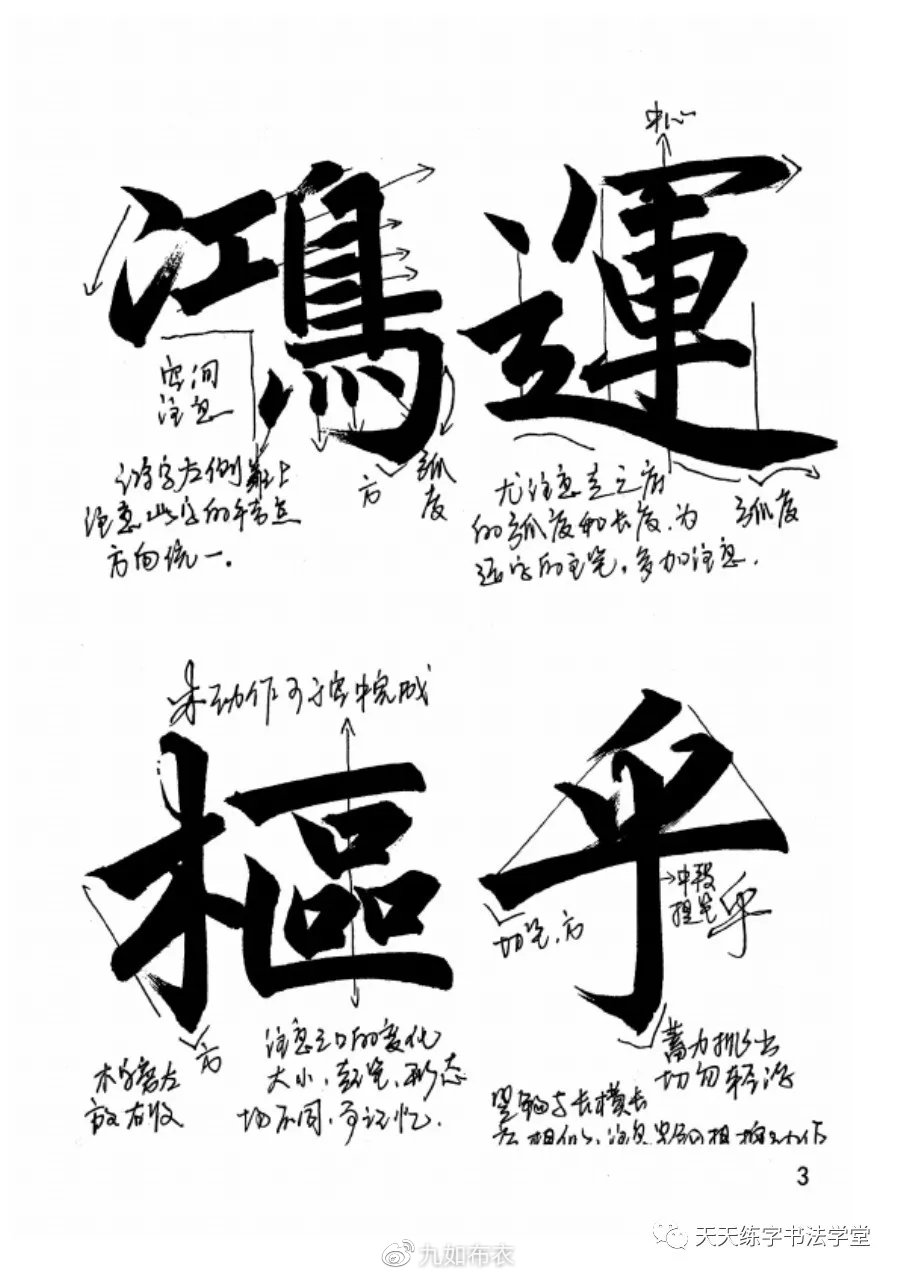 中心
鴻運
空间
注意
该字左侧靠上
注意此字的平衡点
方向统一。
方
弧度
尤注意走之底
的弧度和长度,为
运字的主笔,多加注意.
弧度
此动作可于空中完成
樞乎
切笔、方
中段
提笔
乎
方
木字旁左
放右收
注意三口的变化
大小、起笔、形态
均不同,可记忆.
蓄力挑出
切勿轻浮
竖钩与长横长
3
天天练字书法学堂
九如布衣